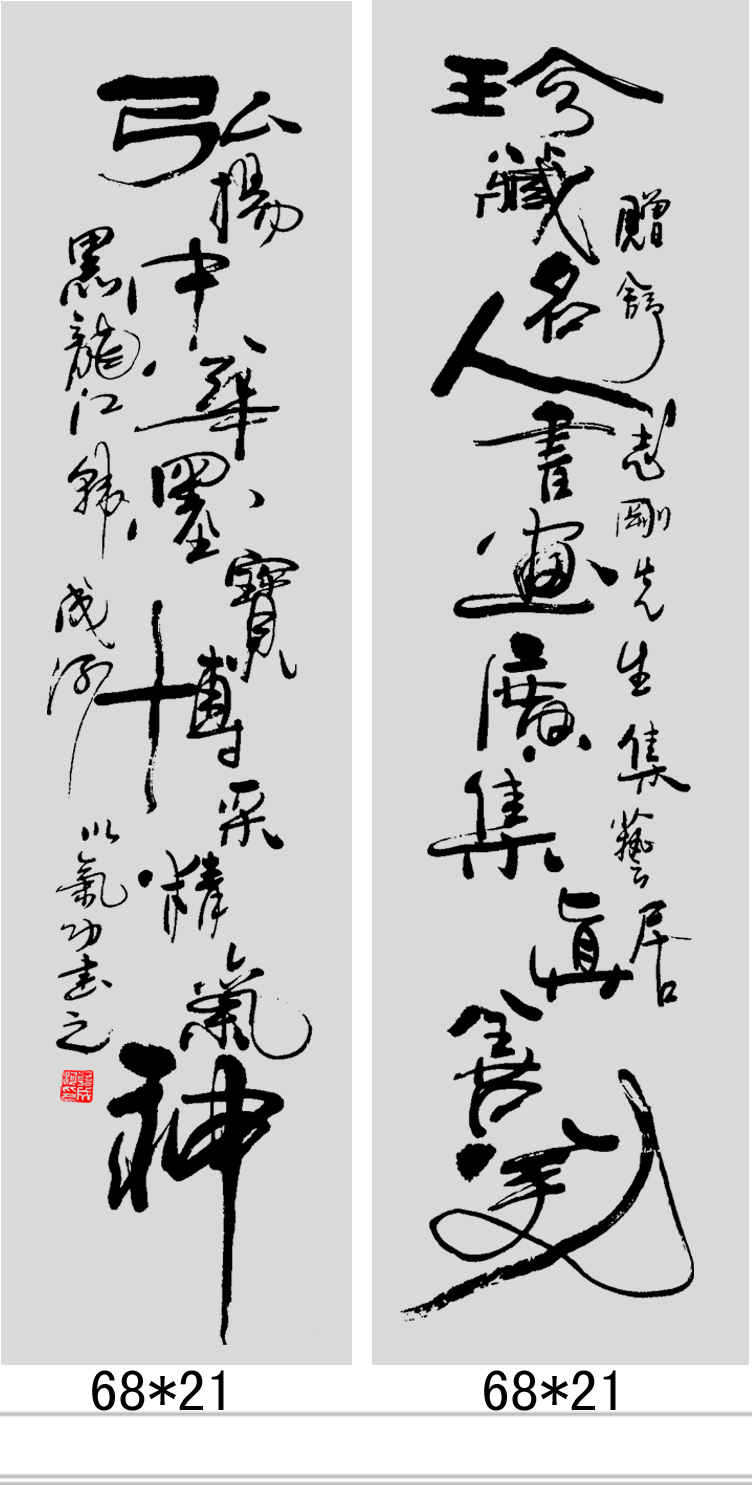 贈舒志剛先生集藝居
珍藏名人書畫廣集眞善美
弘揚中華墨寶博采精氣神
黑龍江韓成河以氣功書之
68*21
68*21